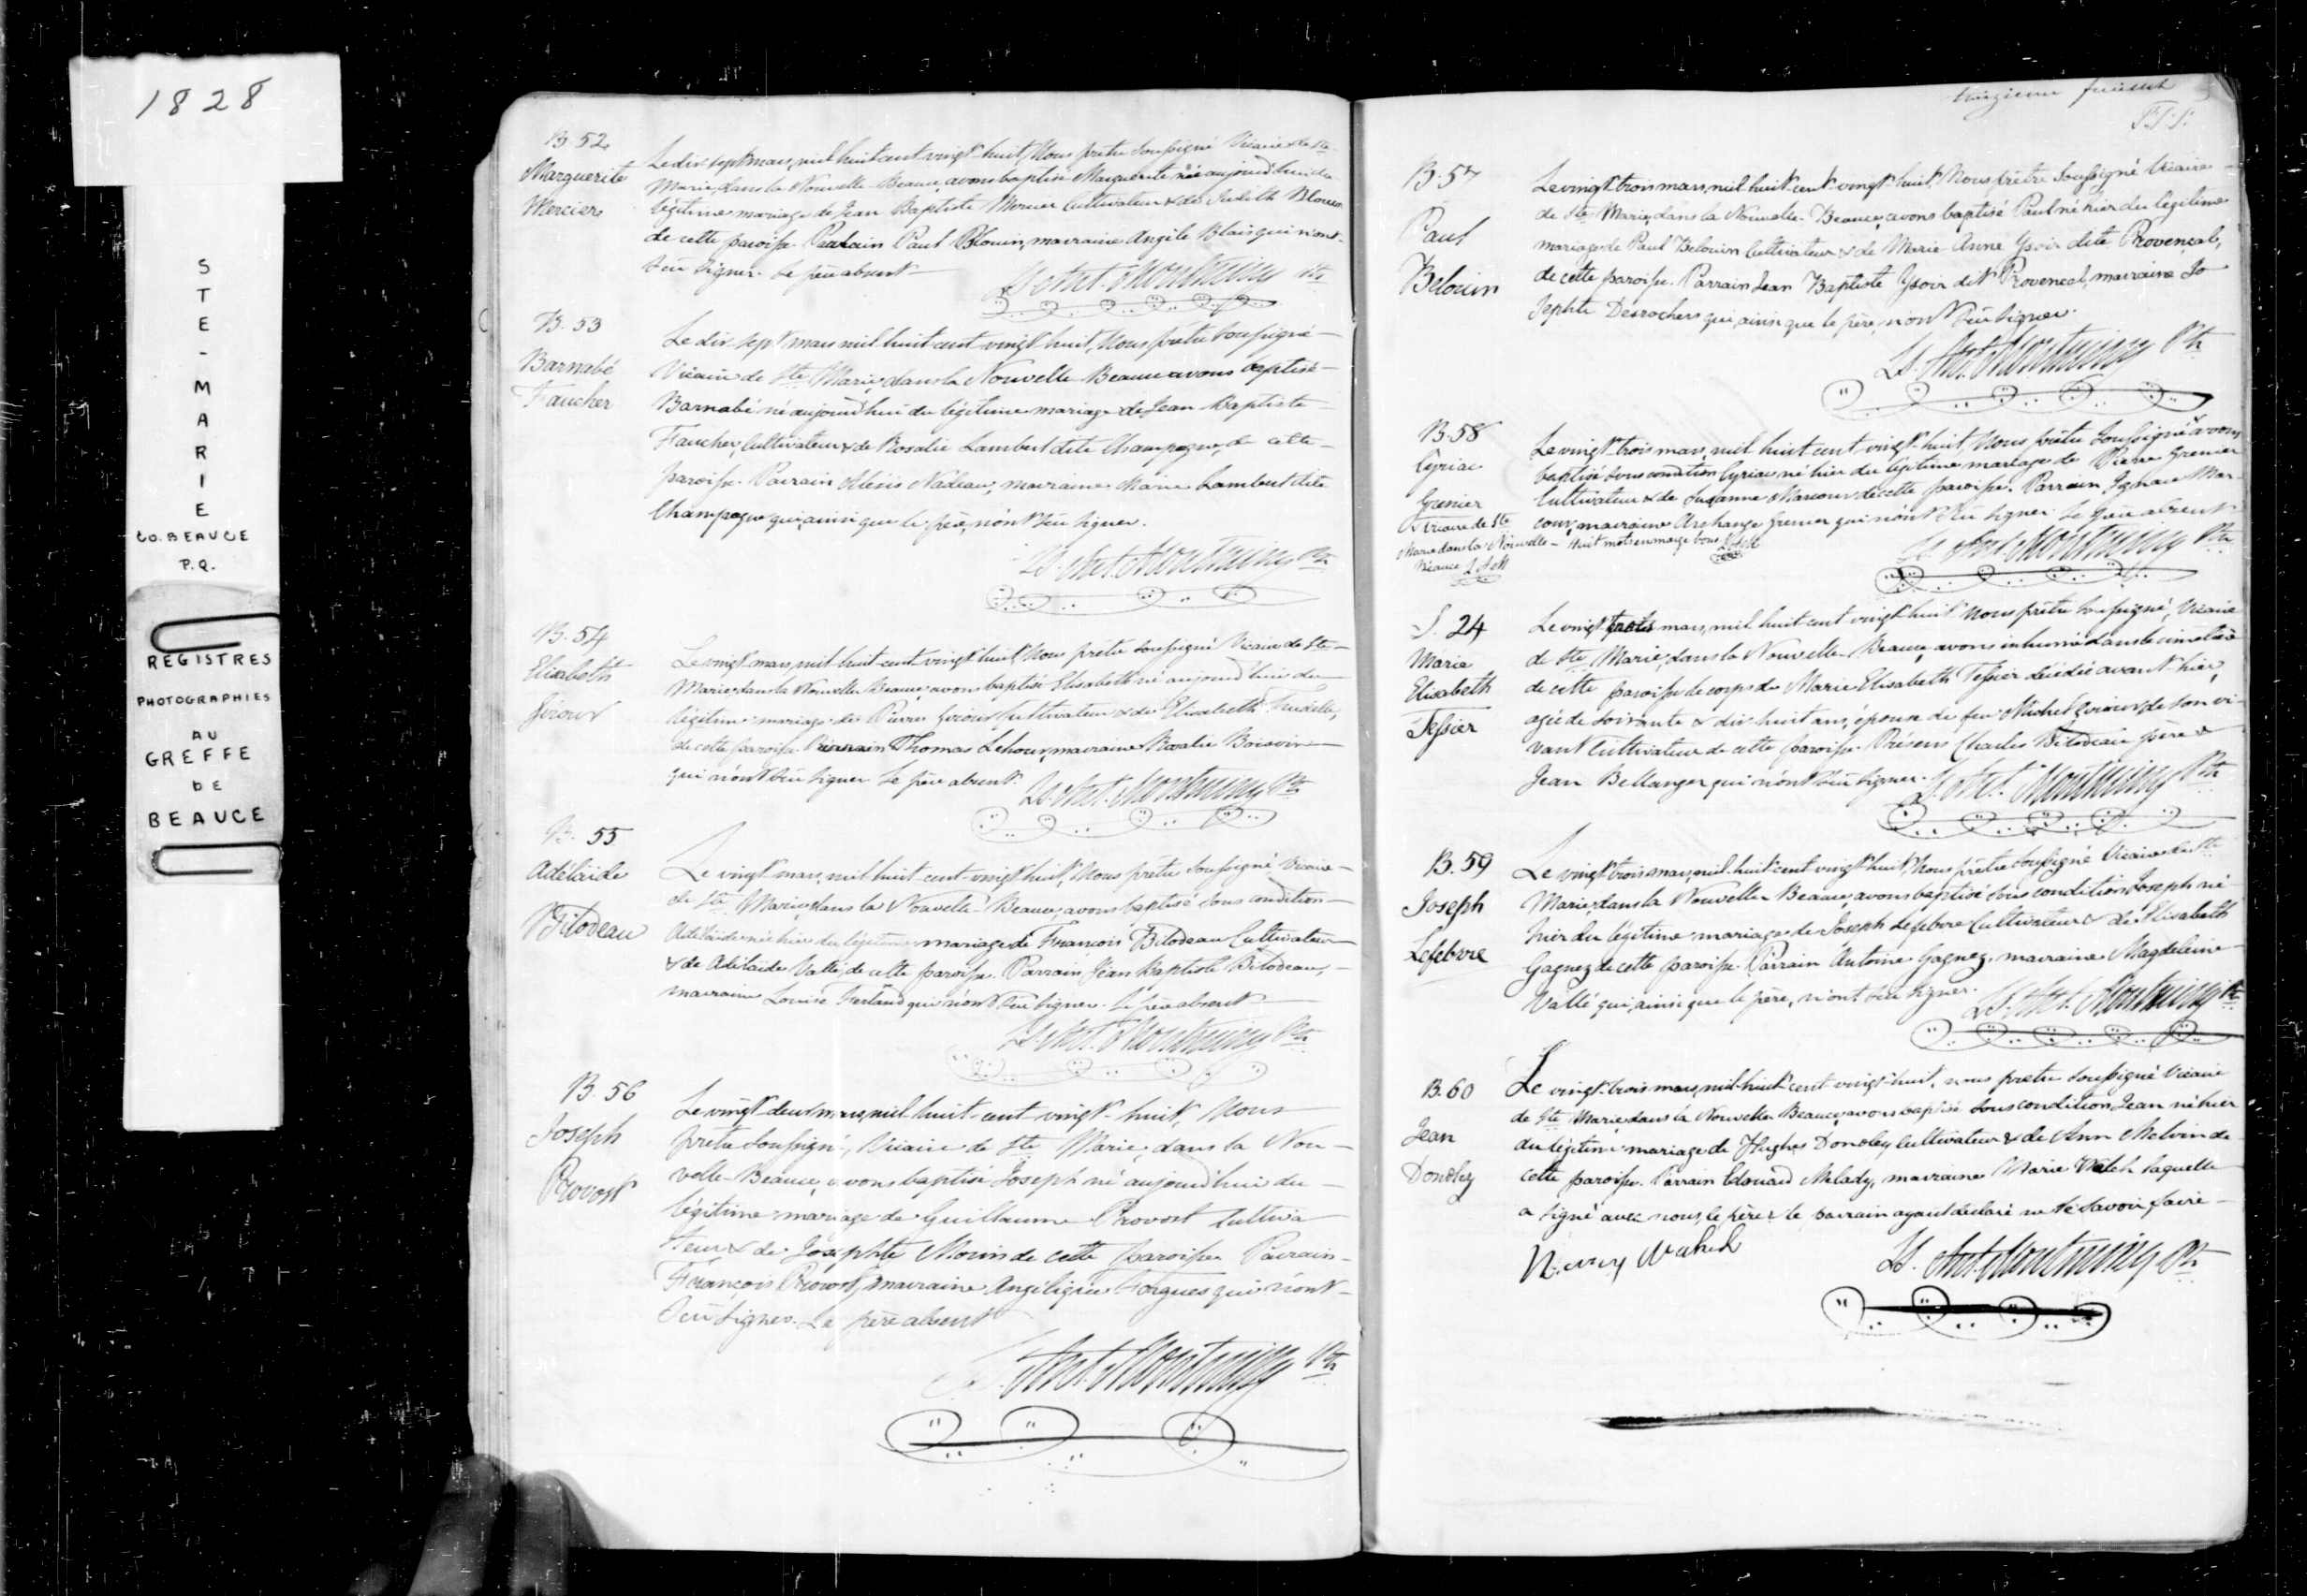 1828
STE-MARIE
CO. BEAUCE
P.Q.
REGISTRES
PHOTOGRAPHIES
AU
GREFFE
DE
BEAUCE
B. 52
Marguerite
Mercier
Le dix sept mars, mil huit cent vingt-huit, Nous prêtre soussigné Vicaire de Ste
Marie, dans la Nouvelle-Beauce, avons baptisé Marguerite née aujourd'hui du
légitime mariage de Jean Baptiste Mercier Cultivateur & de Judith Blouin
de cette paroisse. Parrain Paul Blouin, marraine Angèle Blais qui n'ont
sçu signer. Le père absent
L. Ant. Montminy Ptr
B. 53
Barnabé
Faucher
Le dix sept mars mil huit cent vingt-huit, Nous prêtre soussigné
Vicaire de Ste Marie, dans la Nouvelle-Beauce avons baptisé
Barnabé né aujourd'hui du légitime mariage de Jean Baptiste
Faucher, Cultivateur & de Rosalie Lambert dite Champagne, de cette
paroisse. Parrain Alexis Nadeau, marraine Marie Lambert dite
Champagne qui, ainsi que le père, n'ont sçu signer.
L. Ant. Montminy Ptr
B. 54
Elisabeth
Giroux
Le vingt mars, mil huit-cent-vingt-huit, Nous prêtre soussigné Vicaire de Ste
Marie, dans la Nouvelle Beauce, avons baptisé Elisabeth né aujourd'hui du
légitime mariage de Pierre Giroux Cultivateur & de Elisabeth
de cette paroisse. Parrain Thomas Lehoux, marraine Rosalie Boisvin
qui n'ont sçu signer. Le père absent.
L. Ant. Montminy Ptr
B. 55
Adélaïde
Bilodeau
Le vingt mars, mil huit-cent-vingt-huit, Nous prêtre soussigné Vicaire
de Ste Marie, dans la Nouvelle-Beauce, avons baptisé sous condition
Adélaïde née hier du légitime mariage de François Bilodeau Cultivateur
& de Adélaïde Vallé, de cette paroisse. Parrain Jean Baptiste Bilodeau,
marraine Louise Ferland qui n'ont sçu signer. Le père absent
L. Ant. Montminy Ptr
B. 56
Joseph
Provost
Le vingt-deux mars, mil huit-cent-vingt-huit, Nous
prêtre soussigné, Vicaire de Ste Marie, dans la Nou-
velle-Beauce, avons baptisé Joseph né aujourd'hui du
légitime mariage de Guillaume Provost Cultiva
teur & de Josephte Morin de cette paroisse. Parrain
François Provost, marraine Angélique Forgues qui n'ont
sçu signer. Le père absent
L. Ant. Montminy Ptr
feuillet
B. 57
Paul
Belouin
Le vingt-trois mars, mil huit cent-vingt-huit, Nous prêtre soussigné Vicaire
de Ste Marie, dans la Nouvelle-Beauce, avons baptisé Paul né hier du légitime
mariage de Paul Belouin Cultivateur & de Marie Anne Ysoir dite Provençal,
de cette paroisse. Parrain Jean Baptiste Ysoir dit Provencal, marraine Jo
sephte Desrochers qui, ainsi que le père, n'ont sçu signer.
L. Ant. Montminy Ptr
B. 58
Cyriac
Grenier
Vicaire de Ste
Marie dans la Nouvelle-
Beauce L A M
Le vingt-trois mars, mil huit cent vingt-huit, Nous prêtre soussigné avons
baptisé sous condition Cyriac né hier du légitime mariage de Pierre Grenier
Cultivateur & de Suzanne Marcoux de cette paroisse. Parrain Ignace Mar-
coux, marraine Archange Grenier qui n'ont sçu signer. Le père absent
huit mots en marge bons L A M
L. Ant. Montminy Ptr
S. 24
Marie
Elisabeth
Tessier
Le vingt trois mars, mil huit cent vingt-huit Nous prêtre soussigné, Vicaire
de Ste Marie, dans la Nouvelle-Beauce, avons inhumé dans le cimetière
de cette paroisse le corps de Marie Elisabeth Tessier décédée avant hier,
agée de soixante & dix huit ans, épouse de feu Michel Giroux de son vi-
vant Cultivateur de cette paroisse. Présens Charles Bilodeau père &
Jean Bellanger qui n'ont sçu signer.
L. Ant. Montminy Ptr
B. 59
Joseph
Lefebvre
Le vingt-trois mars, mil-huit cent vingt-huit, Nous prêtre soussigné Vicaire de Ste
Marie, dans la Nouvelle Beauce, avons baptisé sous condition Joseph né
hier du légitime mariage de Joseph Lefebvre Cultivateur & de Elisabeth
Gagnez de cette paroisse. Parrain Antoine Gagnez, marraine Magdeleine
Vallé qui, ainsi que le père, n'ont sçu signer.
L. Ant. Montminy Ptr
B. 60
Jean
Donoley
Le vingt-trois mars, mil-huit-cent-vingt-huit, nous prêtre soussigné Vicaire
de Ste Marie, dans la Nouvelle Beauce, avons baptisé sous condition, Jean né hier
du légitime mariage de Hughs Donoley Cultivateur & de Ann Melvin de
cette paroisse. Parrain Edouard Melady, marraine Marie Walch laquelle
a signé avec nous, le père & le parrain ayant déclaré ne le savoir faire
L. Ant. Montminy Ptr